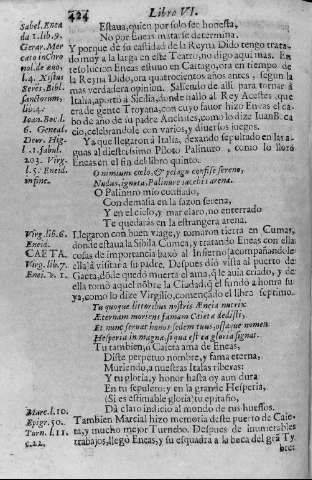 424 Libro VI.
Estaua, quien por solo ser honesta,
No por Eneas matarse determina.
Y porque de su castidad de la Reyna Dido tengo tratado
muy a la larga en este Teatro, no digo aqui mas. En
resolucion Eneas estuuo en Cartago, era en tiempo de
la Reyna Dido, ora quatrocientos años antes, segun la
mas verdadera opinion. Saliendo de alli para tornar à
Italia, aportò à Sicilia, donde hallò al Rey Acestes, que
era de gente Troyana, con cuyo fauor hizo Eneas el cabo
de año de su padre Anchises, como lo dize Iuan Bocacio,
celebrandole con varios, y diuersos juegos.
Ya que llegaron à Italia, dexando sepultado en las aguas
al diestrissimo Piloto Palinuro, como lo llorò
Eneas en el fin del libro quinto.
O nimium cœlo, & pelago confise sereno,
Nudus, ignota, Palinure iacebis arena.
O Palinuro mio confiado,
Con demasia en la sazon serena,
Y en el cielo, y mar claro, no enterrado
Te quedaràs en la estrangera arena.
Llegaron con buen viage, y tomaron tierra en Cumas,
donde estaua la Sibila Cumea, y tratando Eneas con ella
cosas de importancia baxò al Infierno acompañandole
ella à visitar a su padre. Despues diò vista al puerto de
Caeta, dòde quedò muerta el ama, q̃ le auia criado, y de
ella tomò aquel nõbre la Ciudad, q̃ el fundò a honra suya,
como lo dize Virgilio, començãdo el libro septimo.
Tu quoque littoribus nostris Æneia nutrix
Æternam moriens famam Caieta dedisti,
Et nunc seruat honos sedem tuus, ossaque nomen
Hesperia in magna, siqua est ea gloria signat.
Tu tambien, o Caieta ama de Eneas,
Diste perpetuo nombre, y fama eterna,
Muriendo, a nuestras Italas riberas:
Y tu gloria, y honor hasta oy aun dura
En tu sepulcro; y en la grande Hesperia,
(Si es estimable gloria) tu epitafio,
Dà claro indicio al mundo de tus huessos.
Tambien Marcial hizo memoria deste puerto de Caieta,
y mucho mejor Turnebo. Despues de inumerables
trabajos, llegò Eneas, y su esquadra a la boca del grã Ty
bre:
Sabel. Enea
da 1. lib. 9.
Gerar. Mer
cato in Chro
nol. de año,
l. 4. Xistus
Senes. Bibl.
sanctorum,
lib. 4.
Ioan. Boc. l.
6. Geneal.
Deor. Hig.
l. 1. fabul.
203. Virg.
l. 5. Eneid.
in fine.
Virg. lib. 6.
Eneid.
CAETA.
Virg. lib. 7.
Enei. v. 1.
Marc. l. 10.
Epigr. 30.
Turn. l. 11.
c. 22.